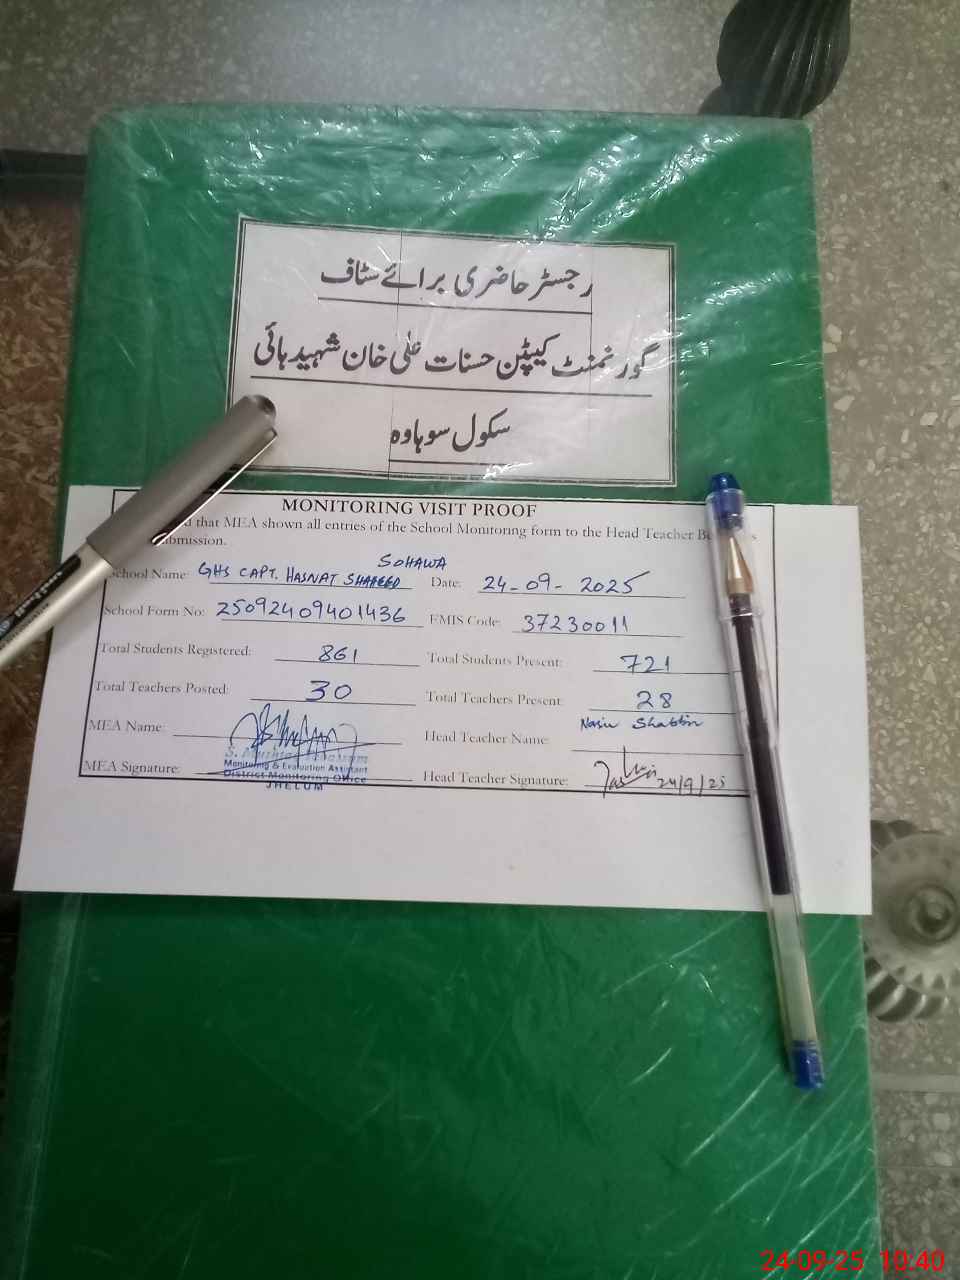 رجسٹر حاضری برائے سٹاف
گورنمنٹ کیپٹن حسنات علی خان شہید ہائی
سکول سوہاوہ
MONITORING VISIT PROOF
that MEA shown all entries of the School Monitoring form to the Head Teacher
SOHAWA
School Name: GHS CAPT. HASNAT SHAHEED Date: 24-09-2025
School Form No: 25092409401436 EMIS Code: 37230011
Total Students Registered: 861 Total Students Present: 721
Total Teachers Posted: 30 Total Teachers Present: 28
MEA Name: Head Teacher Name: Nasir Shabbir
Monitoring & Evaluation Assistant
MEA Signature: District Monitoring Office Head Teacher Signature: 24/9/25
JHELUM
24-09-25 10:40